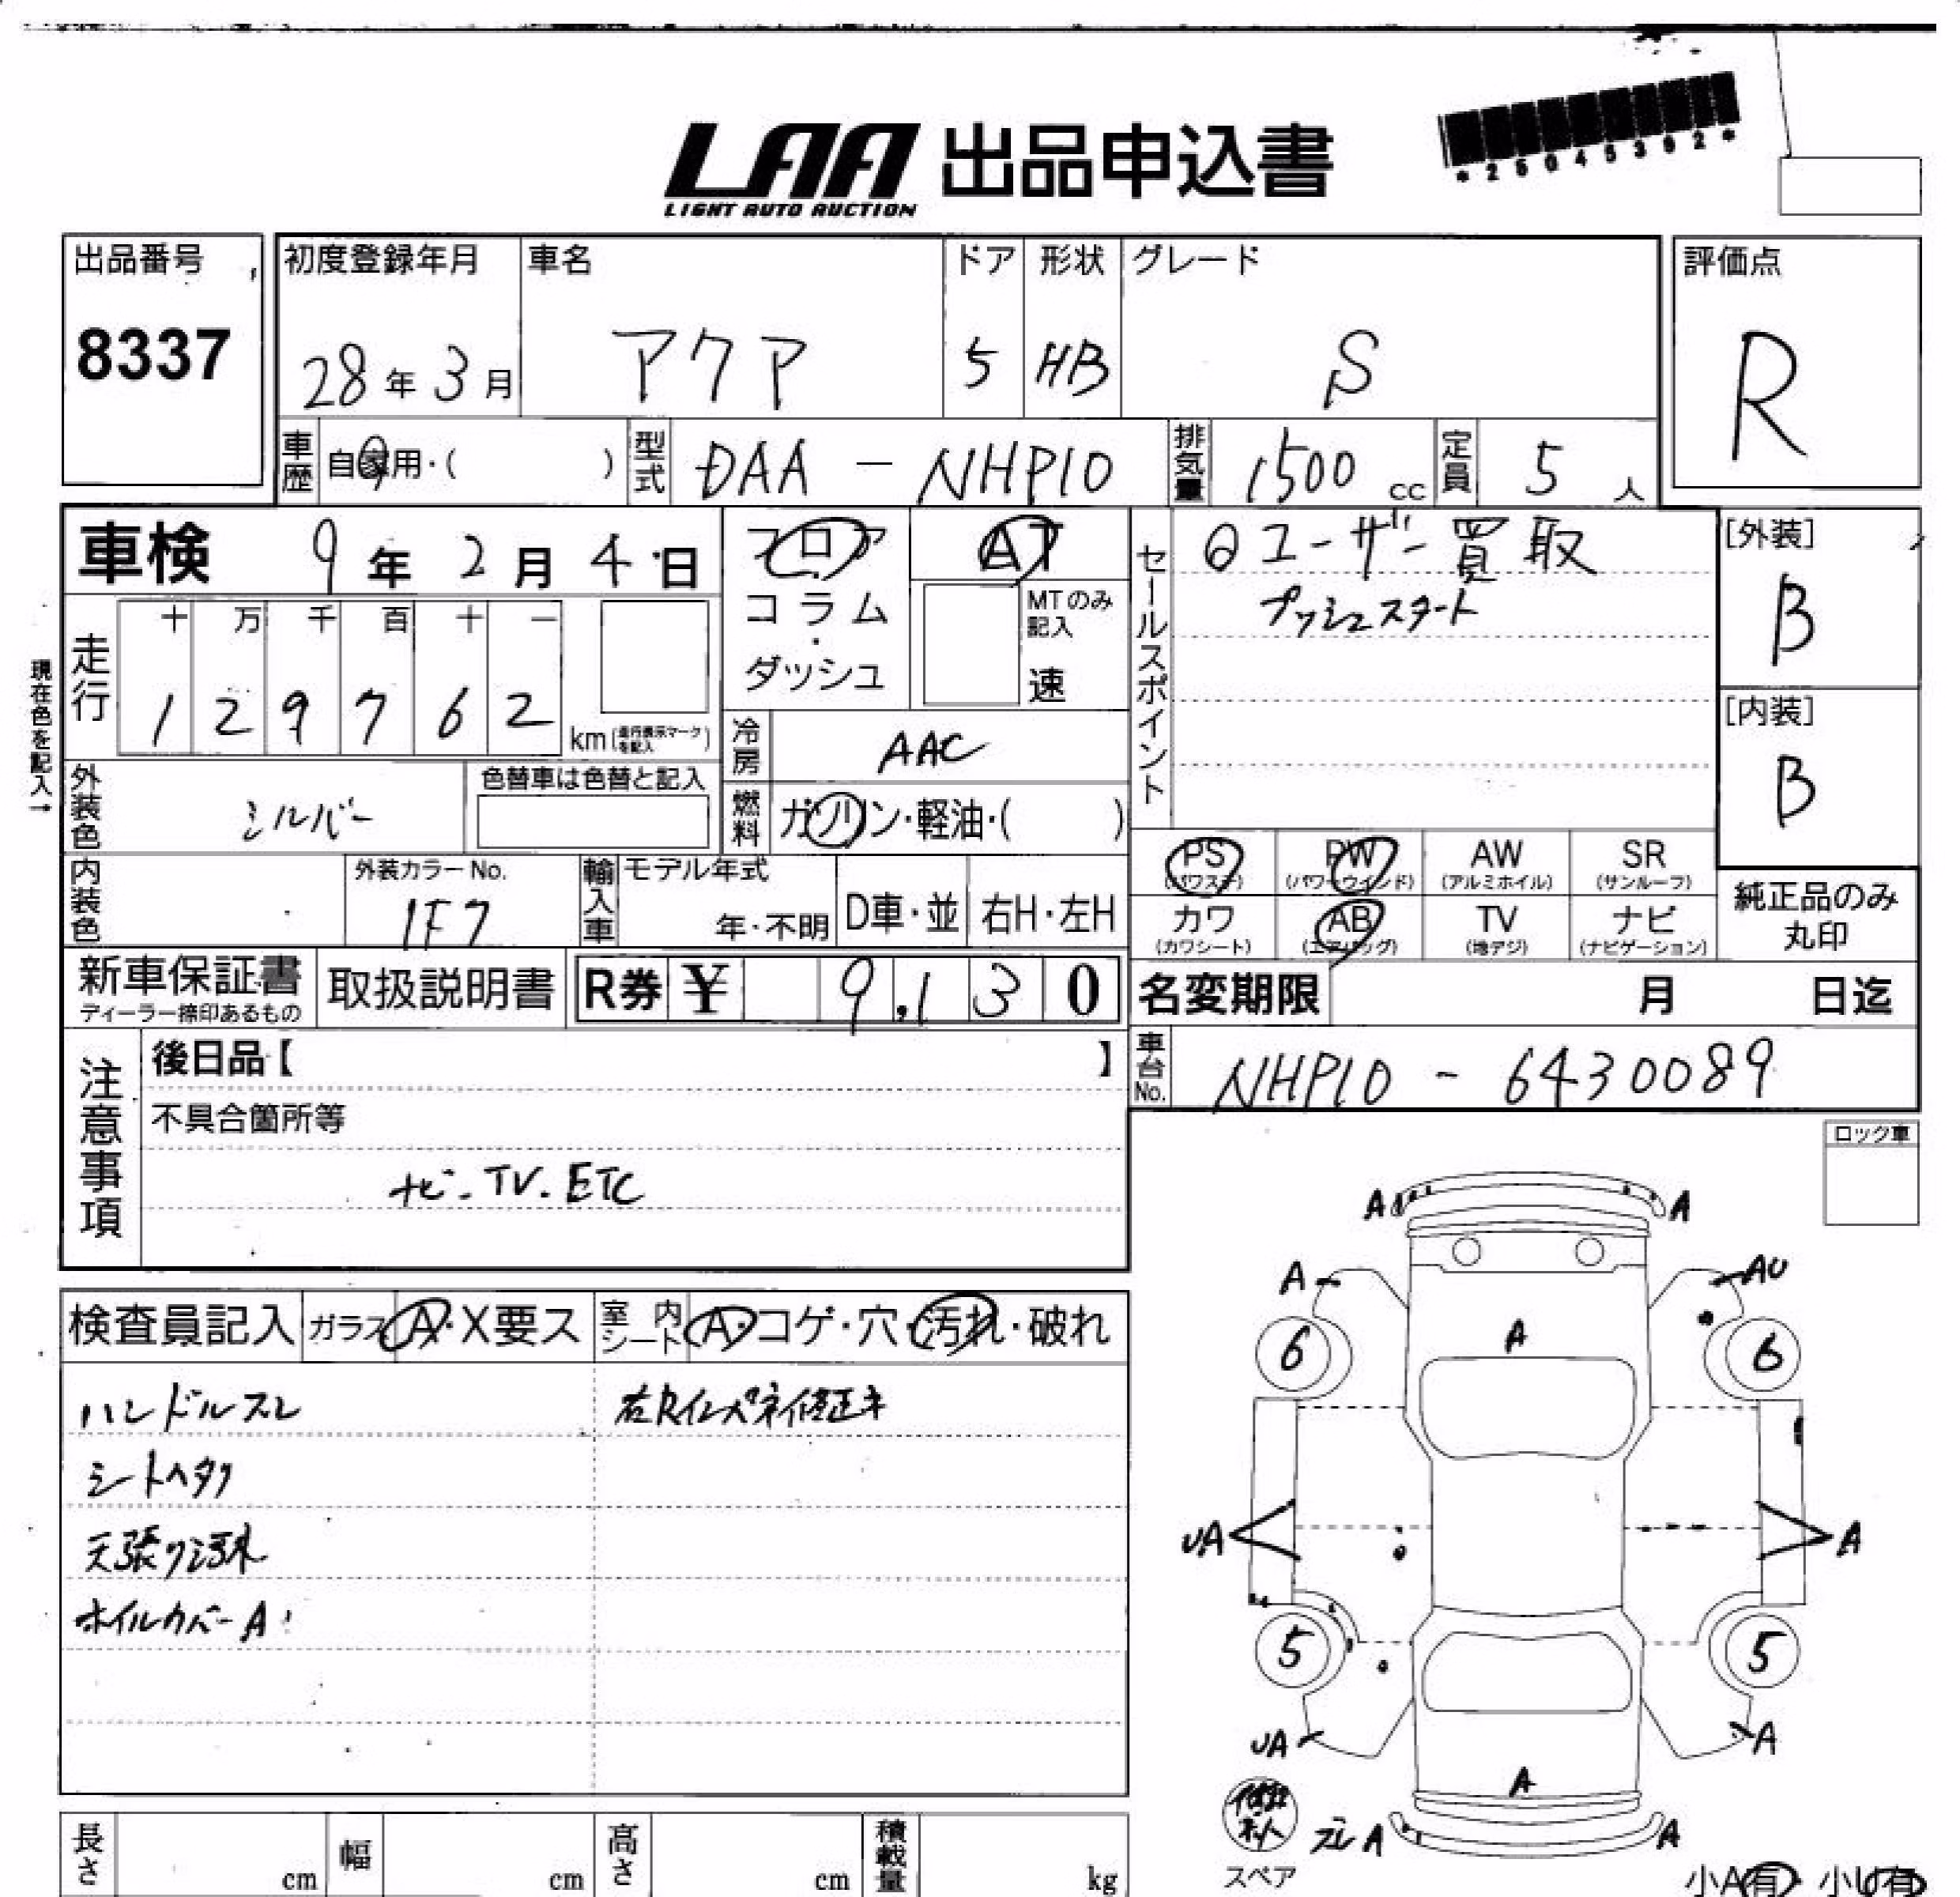 LAA 出品申込書
LIGHT AUTO AUCTION
*25045392*
出品番号
8337
初度登録年月
28年3月
車名
アクア
ドア
5
形状
HB
グレード
S
評価点
R
車歴 自家用・( )
型式 DAA - NHP10
排気量 1500 cc
定員 5 人
車検 9年2月4日
フロア
コラム
・
ダッシュ
AT
MTのみ
記入
速
セールスポイント
ユーザー買取
プッシュスタート
[外装]
B
[内装]
B
現在色を記入→
走行
十 万 千 百 十 一
1 2 9 7 6 2
km(走行表示マークを記入)
冷房 AAC
燃料 ガソリン・軽油・( )
外装色 シルバー
色替車は色替と記入
内装色
外装カラーNo.
1F7
輸入車
モデル年式
年・不明
D車・並
右H・左H
PS
(パワステ)
PW
(パワーウインド)
AW
(アルミホイル)
SR
(サンルーフ)
カワ
(カワシート)
AB
(エアバッグ)
TV
(地デジ)
ナビ
(ナビゲーション)
純正品のみ
丸印
新車保証書
ディーラー捺印あるもの
取扱説明書
R券 ¥ 9,130
名変期限 月 日迄
車台No. NHP10 - 6430089
注意事項
後日品【 】
不具合箇所等
ナビ・TV・ETC
ロック車
検査員記入
ガラス A・X要ス
室内シート A・コゲ・穴・汚れ・破れ
ハンドルスレ
シートヘタリ
天張り汚れ
ホイルカバーA
右Rインパネ修正キ
A A
A AU
A
6 6
UA A
5 5
UA A
A
ズレA A
スペア
小A有・小U有
長さ cm
幅 cm
高さ cm
積載量 kg